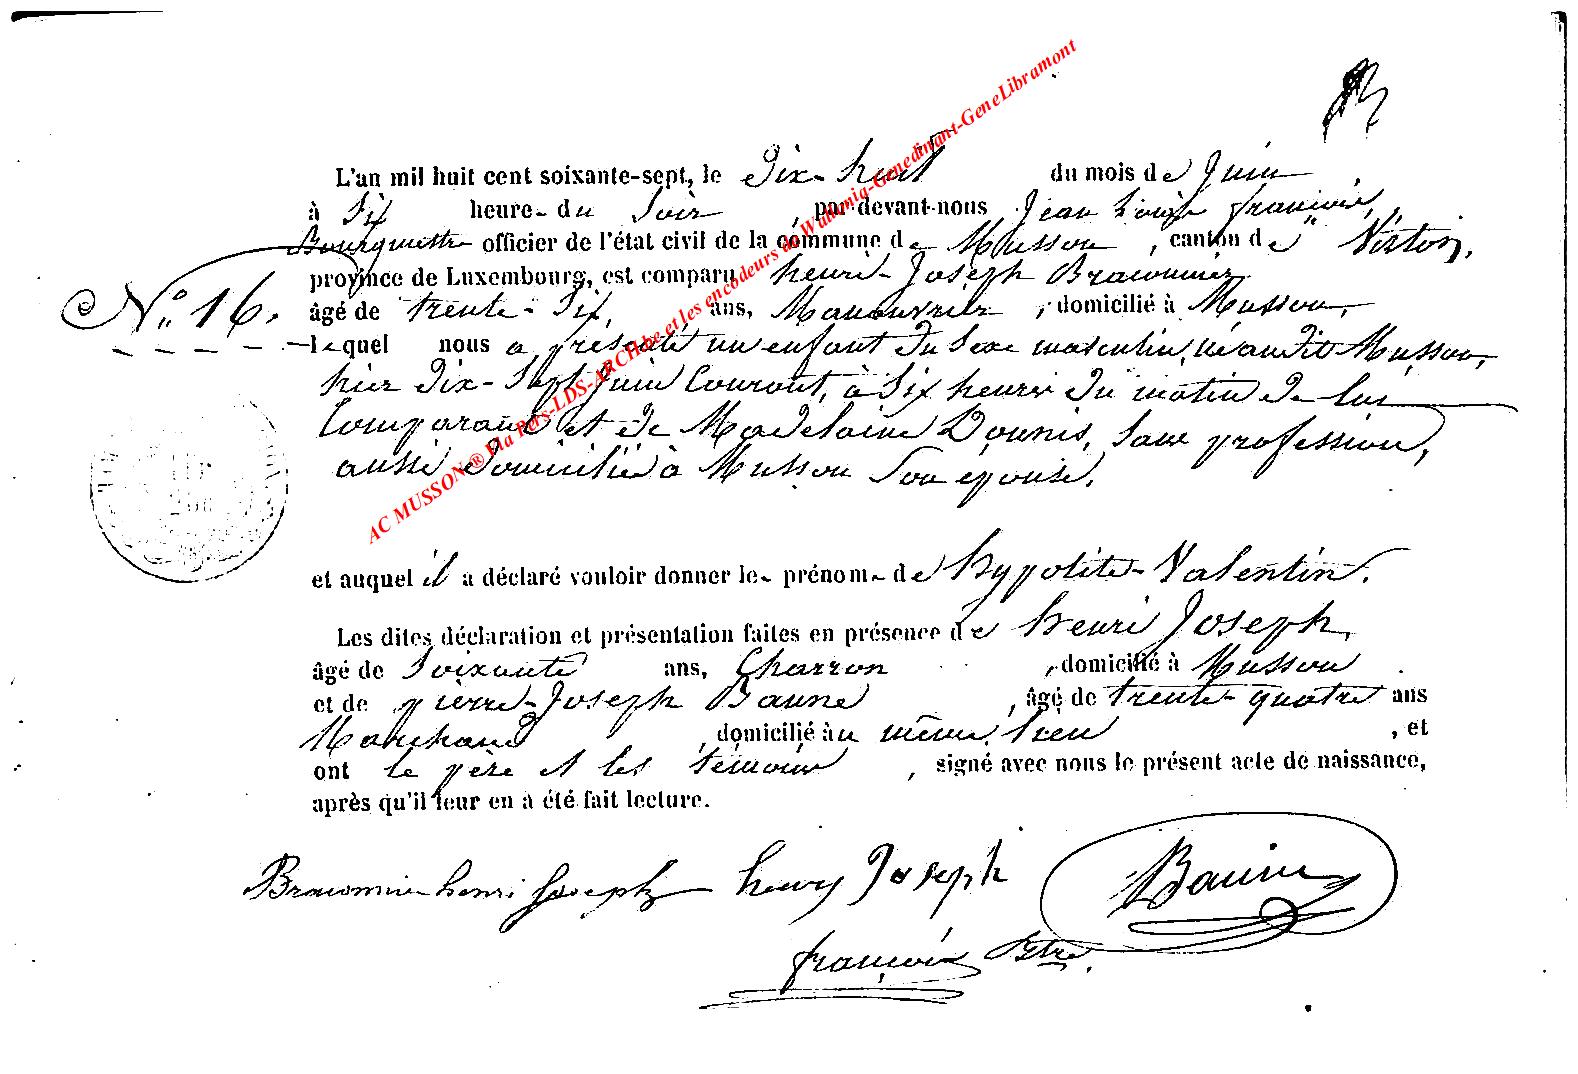 L'an mil huit cent soixante-sept, le Dix-huit du mois de Juin
à Six heure- du Soir, par-devant-nous Jean Louis françois,
Bourguette officier de l'état civil de la commune de Musson, canton de Virton,
province de Luxembourg, est comparu henri-Joseph Braconnier
N.° 16.
âgé de trente-Six, ans, Manouvrier, domicilié à Musson,
lequel nous a présenté un enfant du Sexe masculin, né audit Musson,
hier Dix-Sept Juin Courant, à Six heures du matin de lui
Comparant et de Madelaine Dounis, Sans profession,
aussi domiciliée à Musson Son épouse.
et auquel il a déclaré vouloir donner le- prénom- de hypolite-Valentin.
Les dites déclaration et présentation faites en présence de henri Joseph,
âgé de Soixante ans, Charron, domicilié à Musson
et de pierre-Joseph Baune, âgé de trente-quatre ans
Marchand, domicilié au même lieu, et
ont le père et les témoins, signé avec nous le présent acte de naissance,
après qu'il leur en a été fait lecture.
Braconnier henri Joseph henry Joseph Baune
françois Btte.
AC MUSSON®